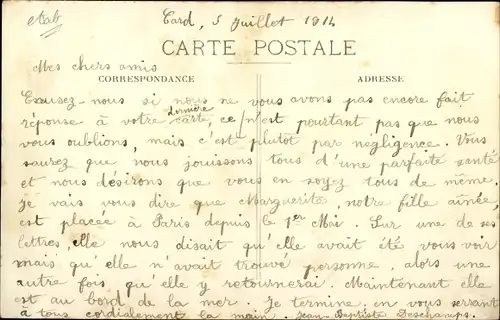 Card, 5 Juillet 1914
CARTE POSTALE
Mes chers amis
CORRESPONDANCE
ADRESSE
Excusez-nous si nous ne vous avons pas encore fait
réponse à votre dernière carte, ce n'est pourtant pas que nous
vous oublions, mais c'est plutot par negligence. Vous
saurez que nous jouissons tous d'une parfaite santé
et nous désirons que vous en soyez tous de même.
Je vais vous dire que Marguerite, notre fille aînée,
est placée à Paris depuis le 1er Mai. Sur une de ses
lettres, elle nous disait qu'elle avait été vous voir
mais qu'elle n'avait trouvé personne, alors une
autre fois qu'elle y retournerai. Maintenant elle
est au bord de la mer. Je termine en vous serrant
à tous cordialement la main. Jean Baptiste Deschamps.